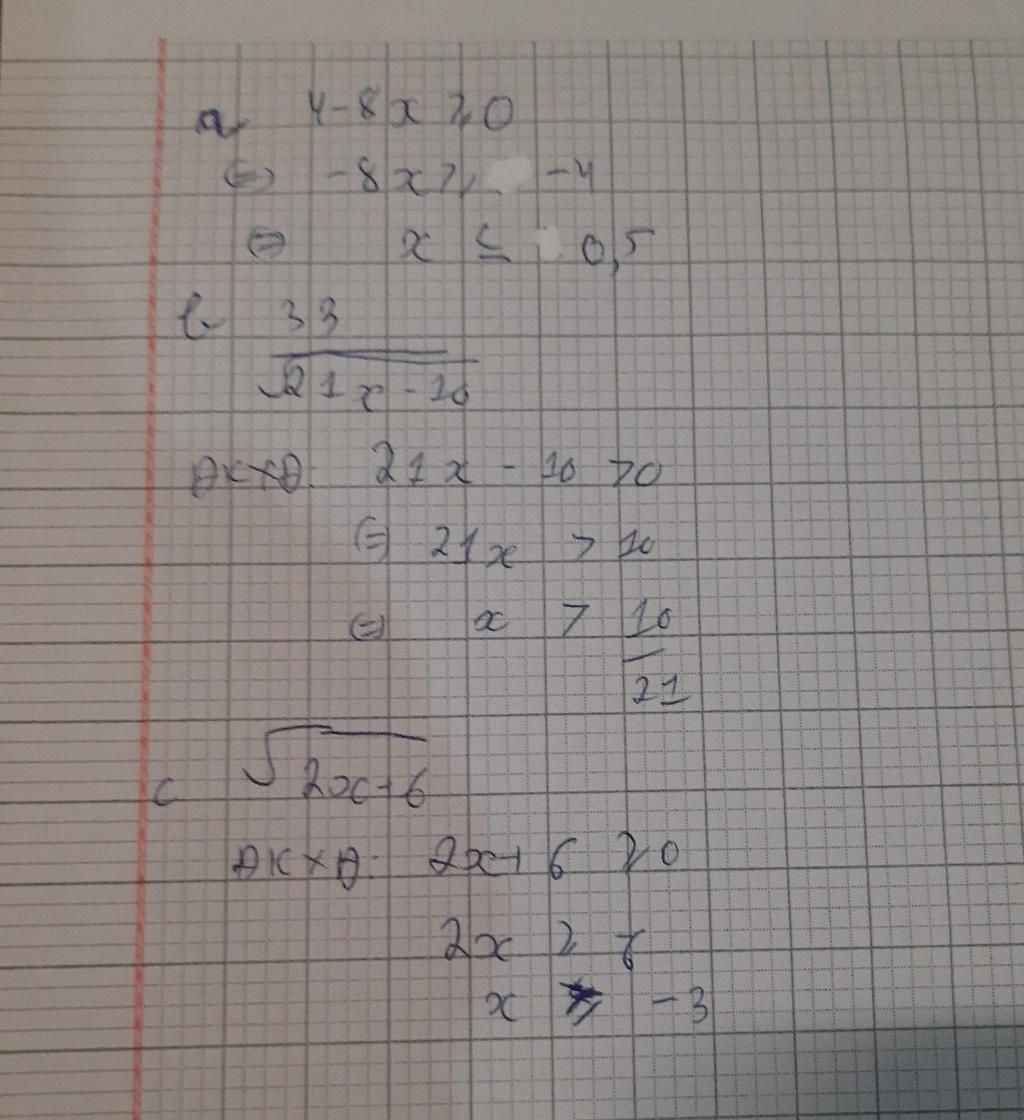 a. 4 - 8x ≥ 0
⇔ -8x ≥ -4
⇔ x ≤ 0,5
b. 33
√21x - 10
ĐKXĐ: 21x - 10 > 0
⇔ 21x > 10
⇔ x > 10
21
c √2x+6
ĐKXĐ: 2x+ 6 ≥ 0
2x ≥
x ≥ -3